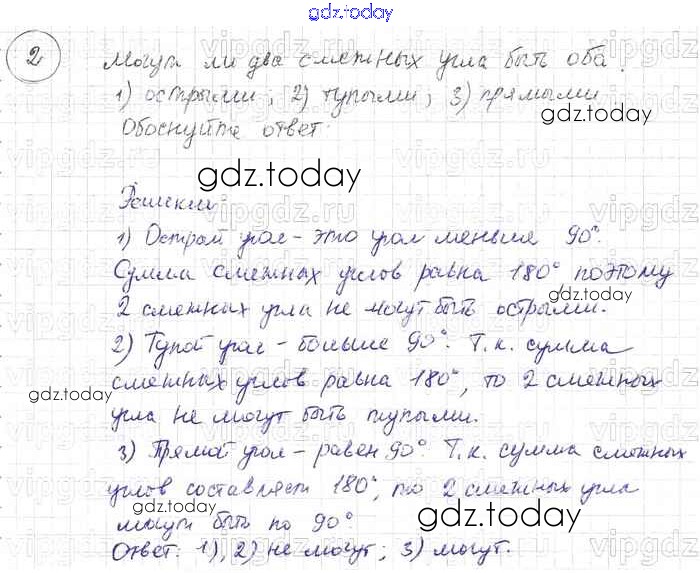 gdz.today
2
Могут ли два смежных угла быть оба:
1) острыми; 2) тупыми; 3) прямыми
gdz.today
Обоснуйте ответ.
gdz.today
Решение
1) Острый угол - это угол меньше 90°.
Сумма смежных углов равна 180°, поэтому
gdz.today
2 смежных угла не могут быть острыми.
2) Тупой угол - больше 90°. Т.к. сумма
смежных углов равна 180°, то 2 смежных
gdz.today
угла не могут быть тупыми.
3) Прямой угол - равен 90°. Т.к. сумма смежных
углов составляет 180°, то 2 смежных угла
могут быть по 90°.
gdz.today
Ответ: 1), 2) не могут; 3) могут.